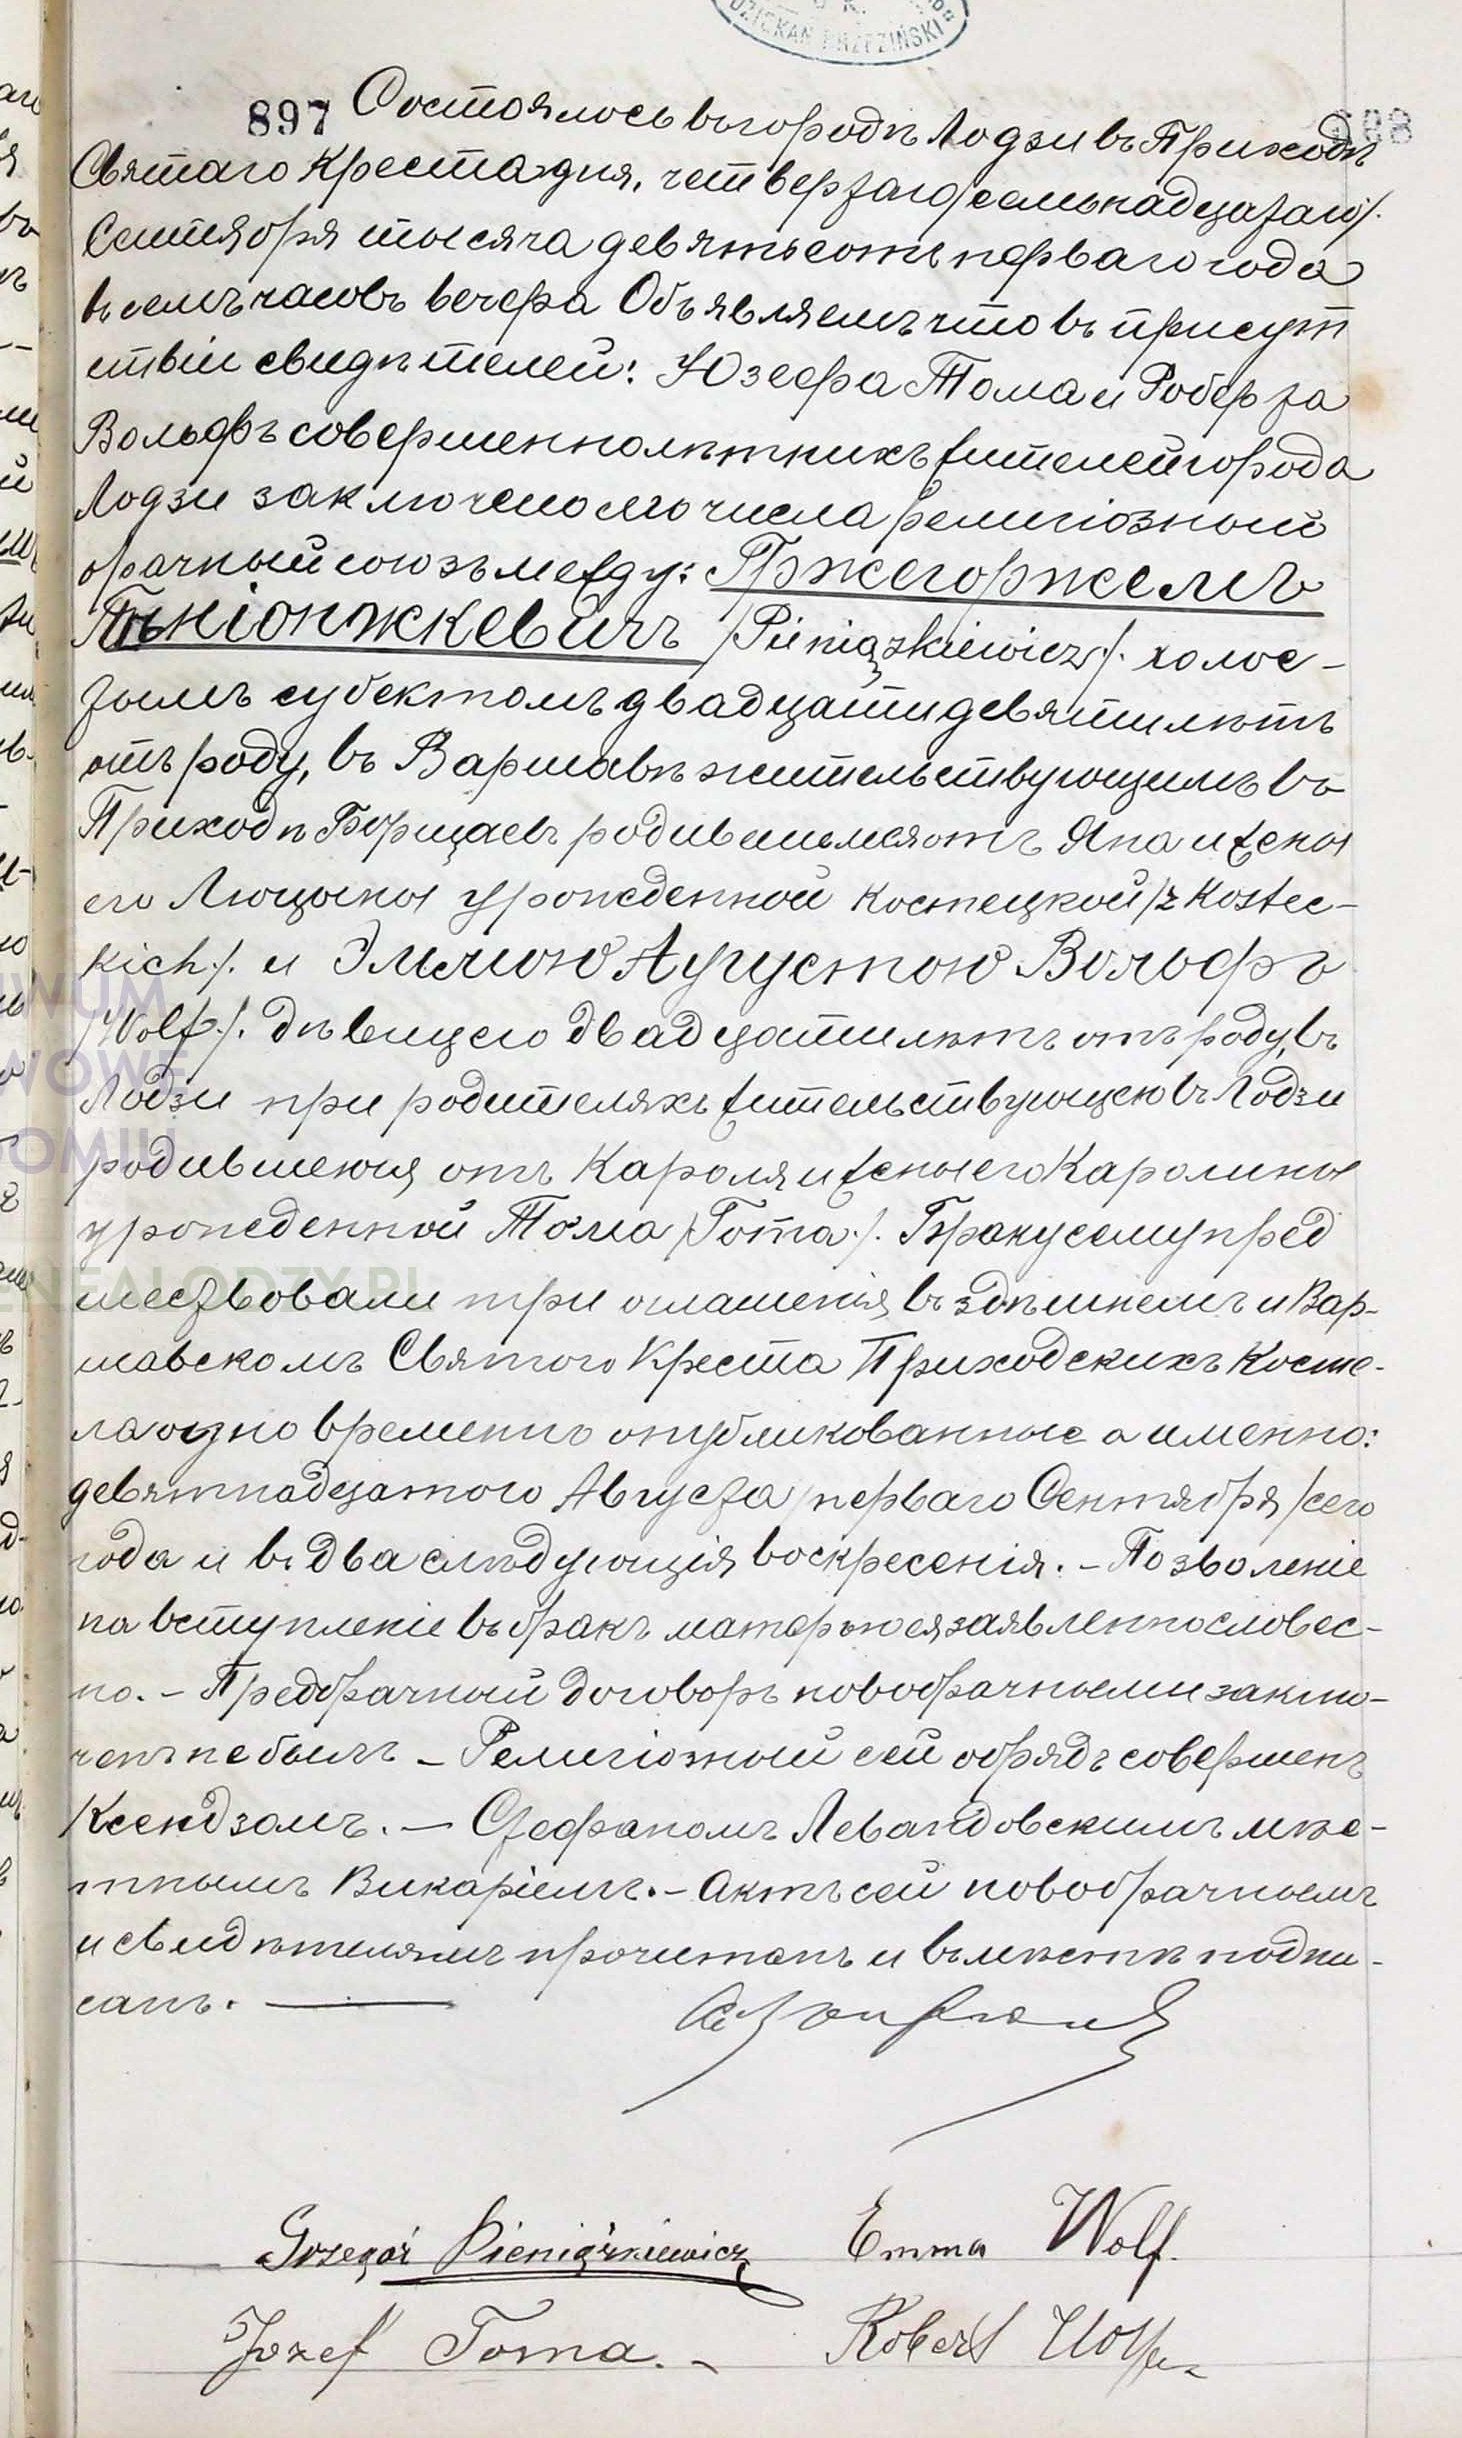 DZIEKAN BRZEZIŃSKI
897 Состоялось въ городѣ Лодзи въ Приходѣ
Святаго Креста дня, четвертаго /семьнадцатаго/.
Сентября тысяча девятьсотъ перваго года
въ семъ часовъ вечера Объявляемъ что въ присут
ствіи свидѣтелей: Юзефа Тома и Роберта
Вольфъ совершеннолѣтнихъ жителей города
Лодзи заключено сего числа религіозный
брачный союзъ между: Гржегоржемъ
Пѣніонжкевичъ /Pieniążkiewicz/. холос-
тымъ субектомъ двадцати девяти лѣтъ
отъ роду, въ Варшавѣ жительствующимъ въ
Приходѣ Борщаевъ родившимся отъ Яна и жены
его Люцыны урожденной Костецкой /z Kostec-
kich/. и Эмлиою Аугустою Вольфъ
/Wolf/. дѣвицею двадцати лѣтъ отъ роду, въ
Лодзи при родителяхъ жительствующею въ Лодзи
родившеюся отъ Кароля и жены его Каролины
урожденной Тома /Toma/. Браку сему пред
шествовали три оглашенія въ здѣшнемъ и Вар-
шавскомъ Святого Креста Приходскихъ Косте-
лаходно временно опубликованные а именно:
девятнадцатого Августа /перваго Сентября/ сего
года и въ два слѣдующія воскресенія. - Позволеніе
на вступленіе въ бракъ матерью ея заявленно словес-
но. - Предбрачный договоръ новобрачными заклю-
ченъ не былъ - Религіозный сей обрядъ совершенъ
Ксендзомъ. - Стефаномъ Левандовскимъ мѣс-
тнымъ Викаріемъ. - Актъ сей новобрачнымъ
и свидѣтелямъ прочитанъ и вмѣстѣ подпи-
санъ.
Grzegorz Pieniążkiewicz Emma Wolf.
Józef Toma. Robert Wolf